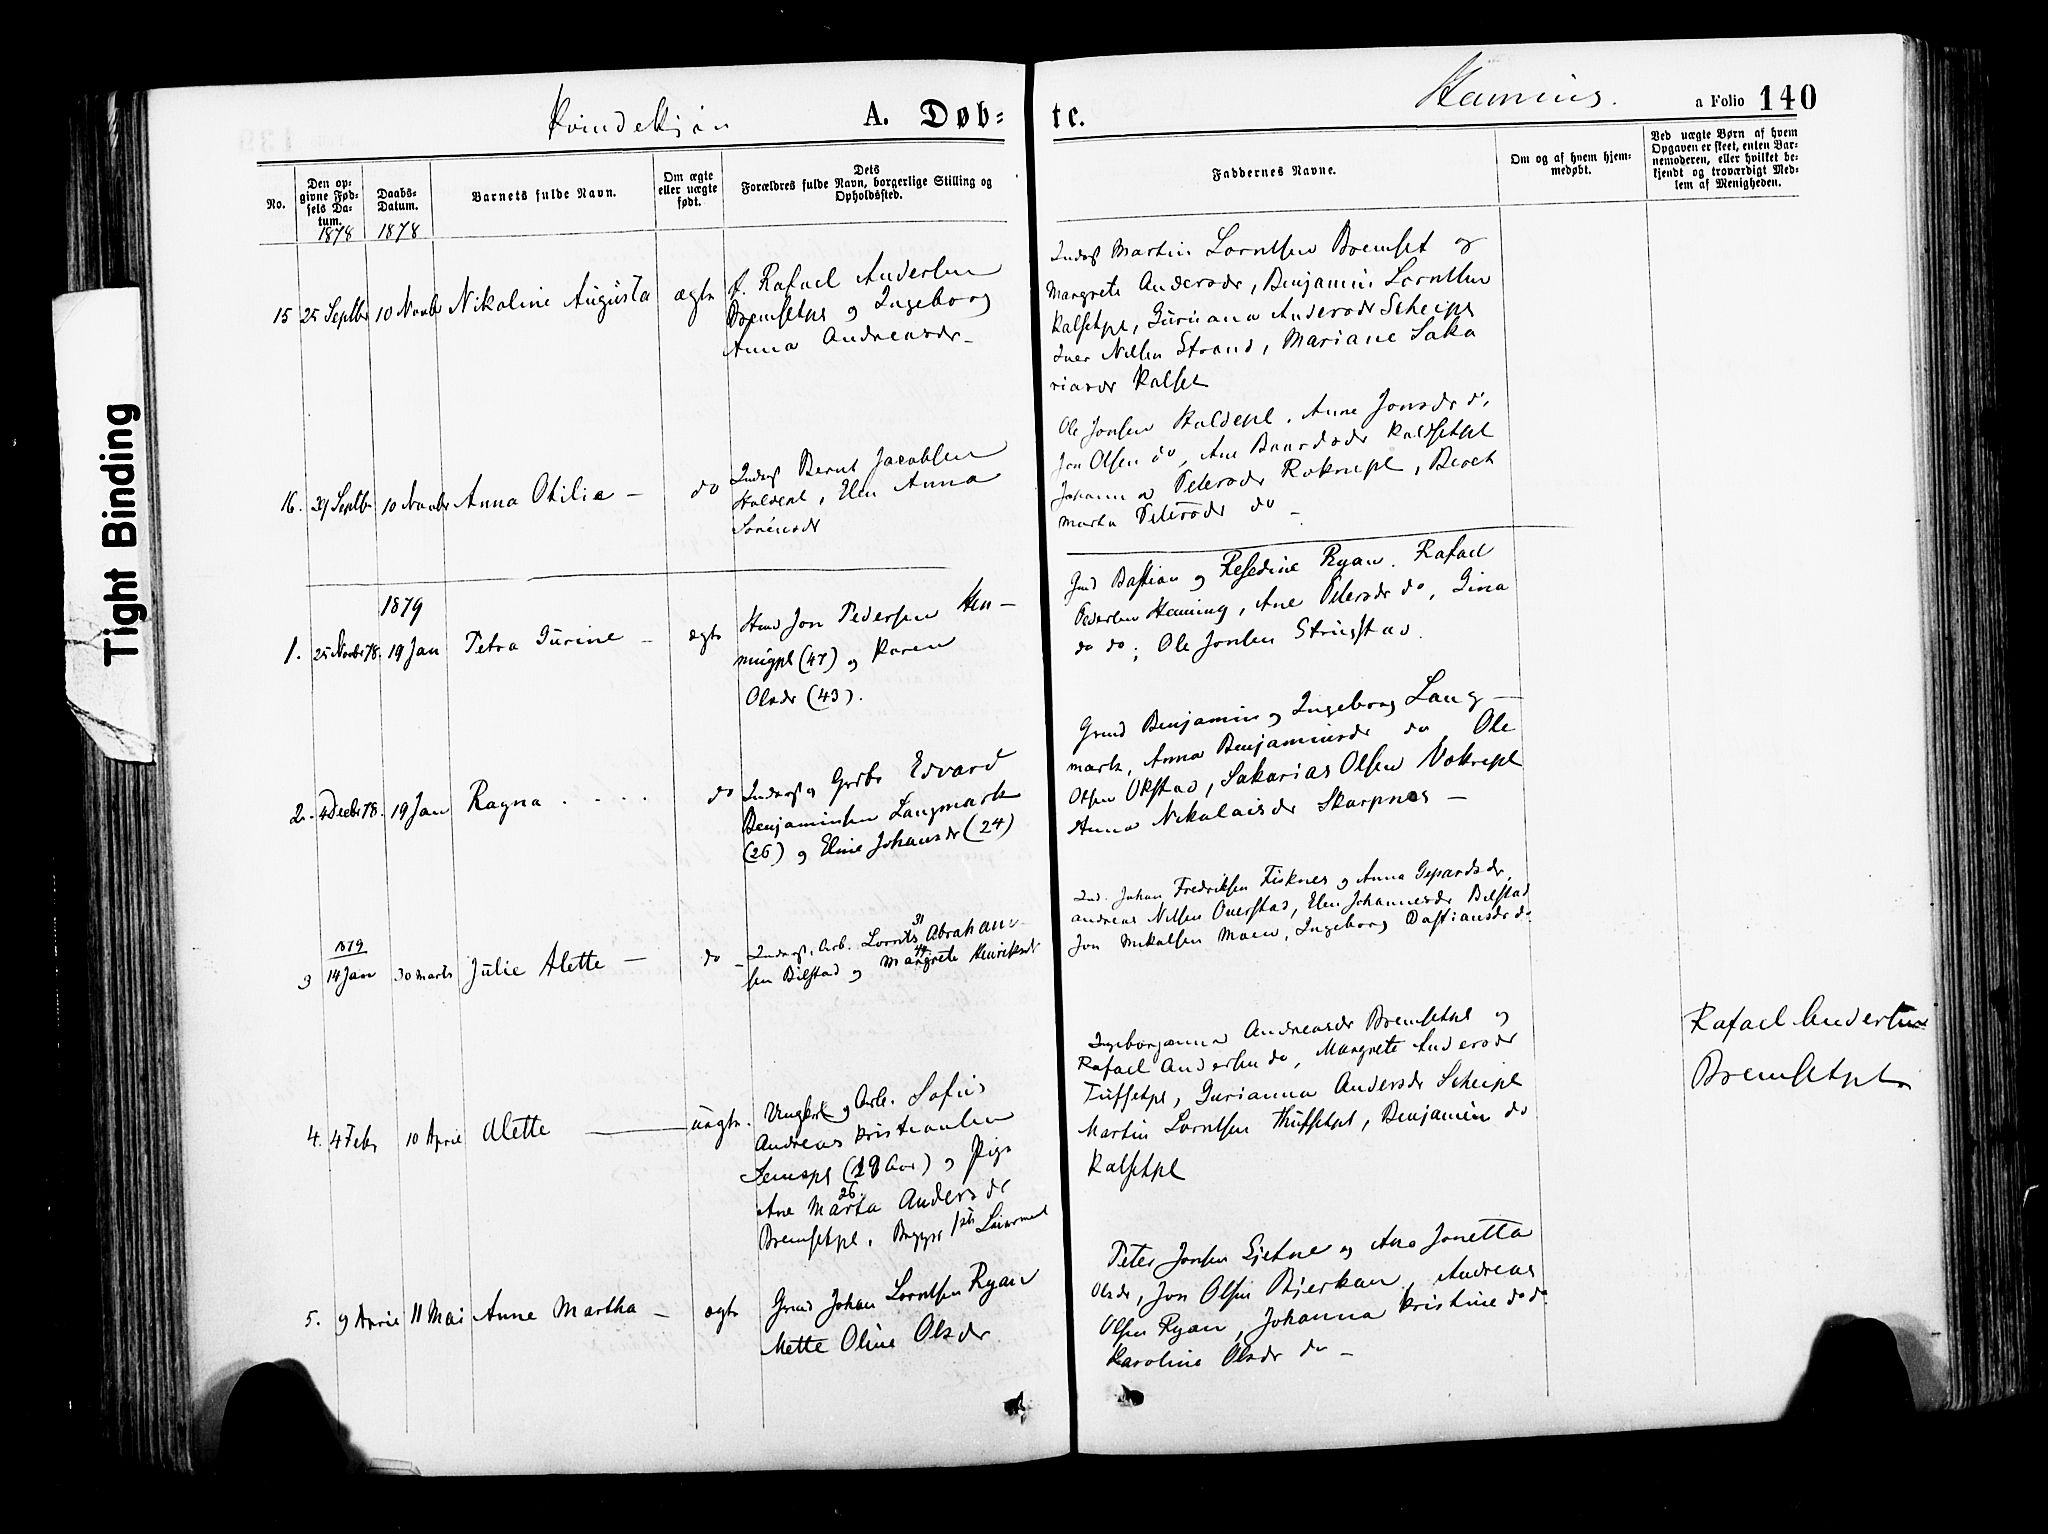 Tight Binding
Kvindekjøn
A. Døb-
te.
Heming.
a Folio 140
No.
Den op-
givne Fød-
sels Da-
tum.
1878
Daabs-
Datum.
1878
Barnets fulde Navn.
Om ægte
eller uægte
født.
Dets
Forældres fulde Navn, borgerlige Stilling og
Opholdssted.
Faddernes Navne.
Om og af hvem hjem-
medøbt.
Ved uægte Børn af hvem
Opgaven er skeet, enten Bar-
nemoderen, eller hvilket be-
kjendt og troværdigt Med-
lem af Menigheden.
15 25 Septbr 10 Novbr Nikoline Augusta ægte
f. Rafael Andersen
Bremsetpl og Ingeborg
Anna Andreasdr –
Inders Martin Lorntsen Bremset og
Margrete Andersdr, Benjamin Lorntsen
Kalsetpl, Guruana Andersdr Scheipl
Iver Nilsen Strand, Mariane Saka
riasdr Kalset
16. 29 Septbr 10 Novbr Anna Otilie – do
Inders Bernt Jacobsen
Haldepl, Elen Anna
Sørensdr
Ole Jonsen Haldepl, Anne Jonsdr do,
Jon Olsen do, Ane Baardsdr Kaldsetpl
Johanna Petersdr Roknepl, Beret
Marta Petersdr do –
1879
1. 25 Novbr 78. 19 Jan Petra Gurine – ægte
Husm Jon Pedersen Hem–
mingpl (47) og Karen
Olsdr (43).
Gmd Bastian og Resedine Ryan. Rafael
Pedersen Heming, Ane Petersdr do, Gina
do do; Ole Jonsen Strugstad.
2. 4 Decbr 78. 19 Jan Ragna . . . . do
Inderst og Grdbr Edvard
Benjaminsen Langmark
(26) og Eline Johansdr (24)
Grmd Benjamin og Ingeborg Lang–
mark, Anna Benjaminsdr do, Ole
Olsen Okstad, Sakarias Olsen Vokrepl
Anna Nikolaisdr Skarpnes –
1879
3 14 Jan 30 Marts Julie Alette – do –
Inderst, Arb. Lornts 31 Abraham–
sen Bilstad og 44 Margrete Henriksdr
Ind. Johan Fredriksen Fisknes og Anna Gepardsdr,
Andreas Nilsen Overstad, Elen Johannesdr Bilstad
Jon Mikalsen Moen, Ingeborg Bastiansdr do.
4. 4 Febr 10 April Alette – uægte.
Ungkrl og Arb. Sofus
Andreas Kristiansen
Semspl (28 Aar) og Pige
Ane Marta 26 Andersdr
Bremsetpl. Begges 1ste Leiermaal
Ingeboranna Andreasdr Bremsetpl og
Rafael Andersen do, Margrete Andersdr
Tuffsetpl, Gurianna Andersdr Scheipl
Martin Lorntsen Thuffsetpl, Benjamin do
Kalsetpl
Rafael Andersen
Bremsetpl.
5. 9 April 11 Mai Anne Martha – ægte
Grmd Johan Lorntsen Ryan
Mette Oline Olsdr
Peter Jonsen Gjetne og Ane Jonetta
Olsdr, Jon Olsen Bjerkan, Andreas
Olsen Ryan, Johanna Kristine do do
Karoline Olsdr do –